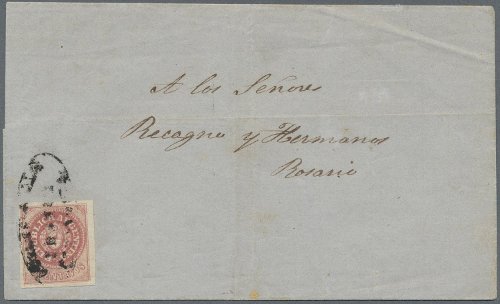 A los Señores
Recagno y Hermanos
Rosario